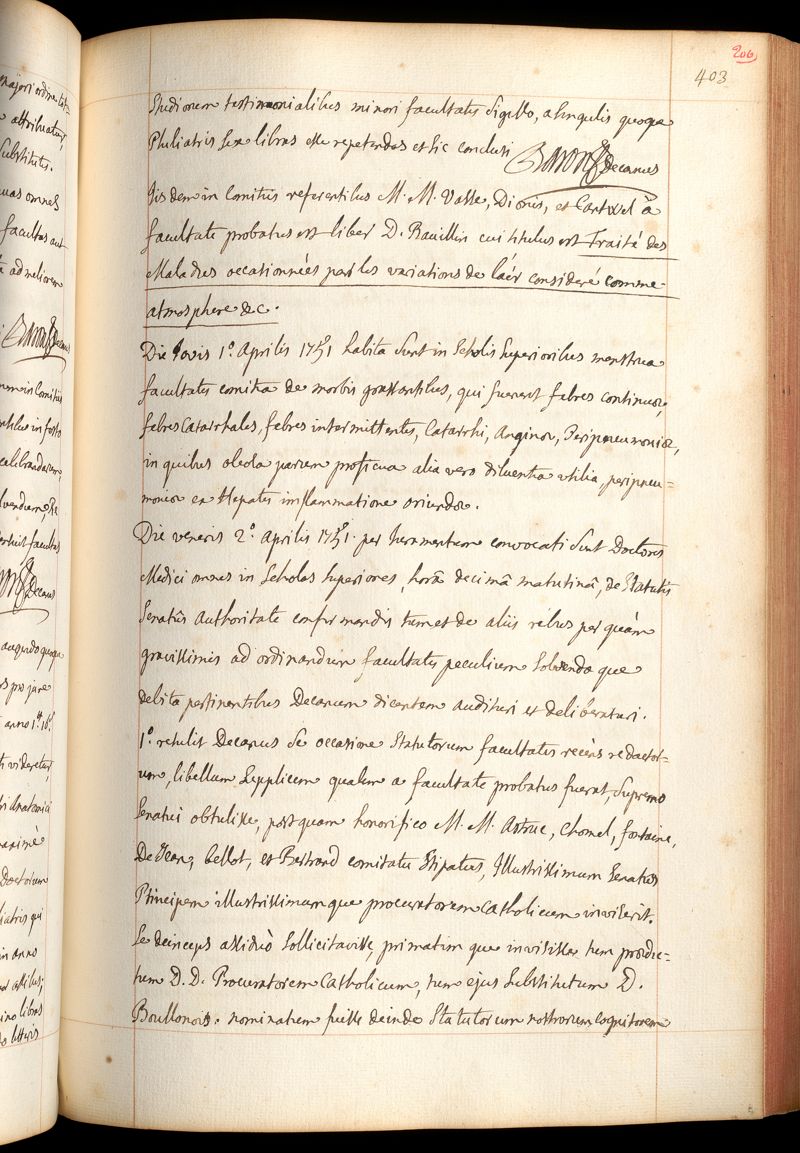 206
403
Studiorum testimonialibus minori facultatis sigillo, a singulis quoque
Philiatris sex libras esse repetendas et sic conclusi Baron Decanus
Iisdem in Comitiis referentibus M. M. Vasse, Dionis, et Cantwel à
facultate probatus est liber D. Raullin cui titulus est Traité des
Maladies occationnées par les variations de l'air consideré comme
atmosphere &c.
Die Jovis 1º. Aprilis 1751 habita sunt in Scholis Superioribus menstrua
facultatis comitia de morbis grassantibus, qui fuerunt febres continuæ,
febres Catarrhales, febres intermittentes, Catarrhi, Anginæ, Peripneumoniæ,
in quibus oleosa parum proficua alia vero diluentia utilia, peripneu=
moniæ ex Hepatis inflammatione oriundæ.
Die veneris 2º. Aprilis 1751. per Iuramentum convocati sunt Doctores
Medici omnes in Scholas Superiores, horâ decimâ matutinâ, de Statutis
Senatûs Authoritate confirmandis tum et de aliis rebus per quàm
gravissimis ad ordinandum facultatis peculium Solvenda que
debita pertinentibus Decanum dicentem audituri et deliberaturi.
1º. retulit Decanus se occasione Statutorum facultatis recèns redactor=
um, libellum Supplicem qualem a facultate probatus fuerat, Supremo
Senatui obtulisse, postquam honorifico M. M. Astruc, Chomel, fontaine,
De Jean, Bellot, et Bertrand comitatu Stipatus, Illustrissimum Senatus
Principem illustrissimumque procuratorem Catholicum inviserit.
Se deinceps assiduò Sollicitavisse, primatim que invisisse tum prædic=
tum D. D. Procuratorem Catholicum, tum ejus Substitutum D.
Boullenois. nominatum fuisse deinde Statutorum nostrorum cognitorem